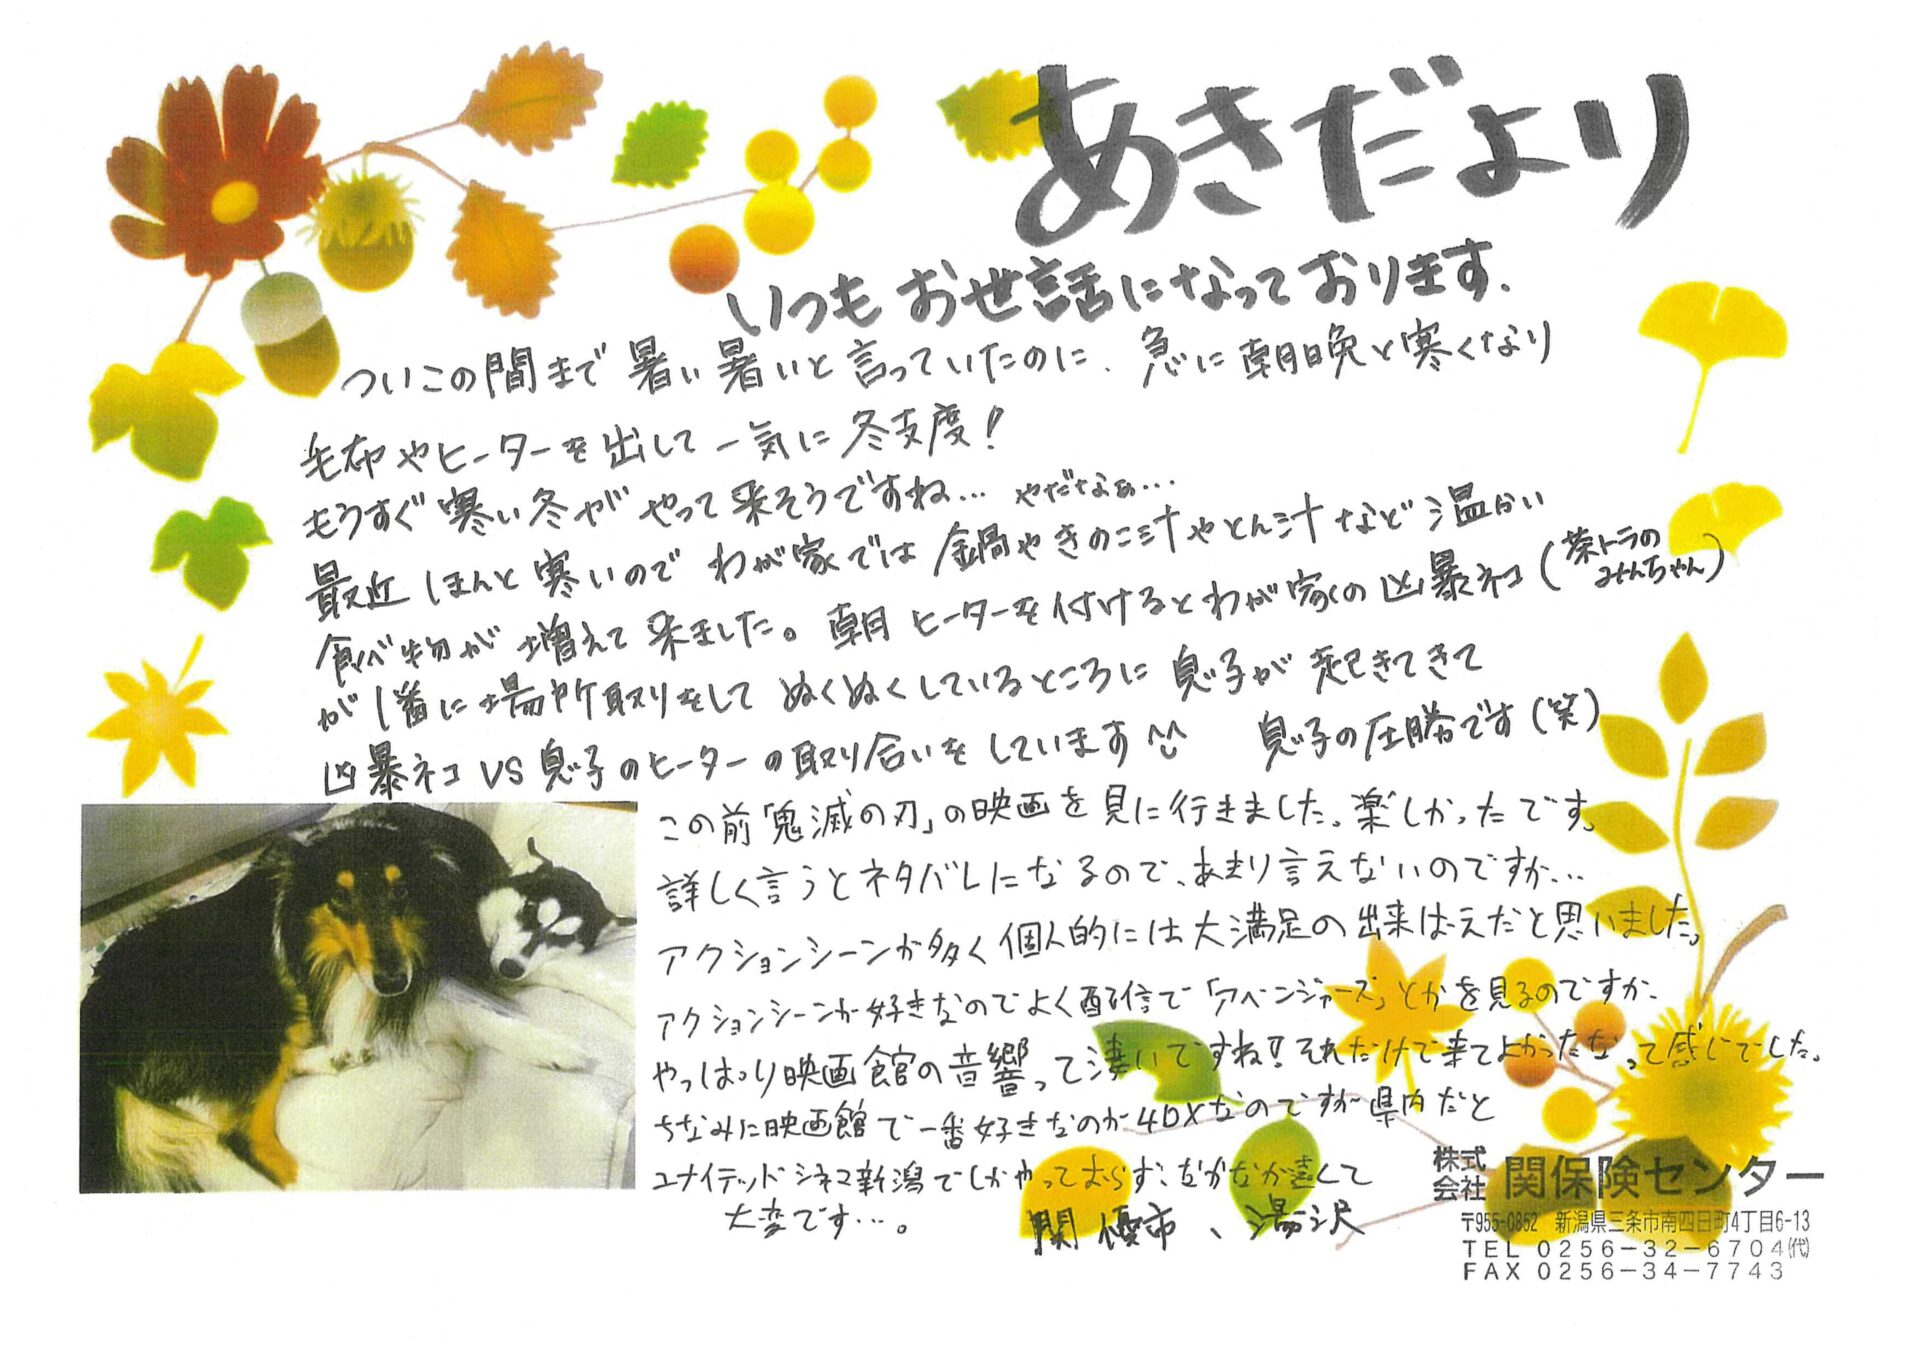 あきだより
いつもお世話になっております.
ついこの間まで暑い暑いと言っていたのに、急に朝晩と寒くなり
毛布やヒーターを出して一気に冬支度!
もうすぐ寒い冬がやって来そうですね… やだなぁ…
最近ほんと寒いのでわが家では鍋やきのこ汁やとん汁など温かい
食べ物が増えて来ました。朝ヒーターを付けるとわが家の凶暴ネコ(茶トラのみんちゃん)
が1番に場所取りをしてぬくぬくしているところに息子が起きてきて
凶暴ネコVS息子のヒーターの取り合いをしています 息子の圧勝です(笑)
この前「鬼滅の刃」の映画を見に行きました。楽しかったです。
詳しく言うとネタバレになるので、あまり言えないのですが…
アクションシーンが多く個人的には大満足の出来ばえだと思いました。
アクションシーンが好きなのでよく配信で「アベンジャーズ」とかを見るのですが、
やっぱり映画館の音響って凄いですね!!それだけで来てよかったなって感じでした。
ちなみに映画館で一番好きなのが4DXなのですが県内だと
ユナイテッドシネマ新潟でしかやっておらず、なかなか遠くて
大変です…。
関 優市、湯沢
株式会社 関保険センター
〒955-0852 新潟県三条市南四日町4丁目6-13
TEL 0256-32-6704(代)
FAX 0256-34-7743